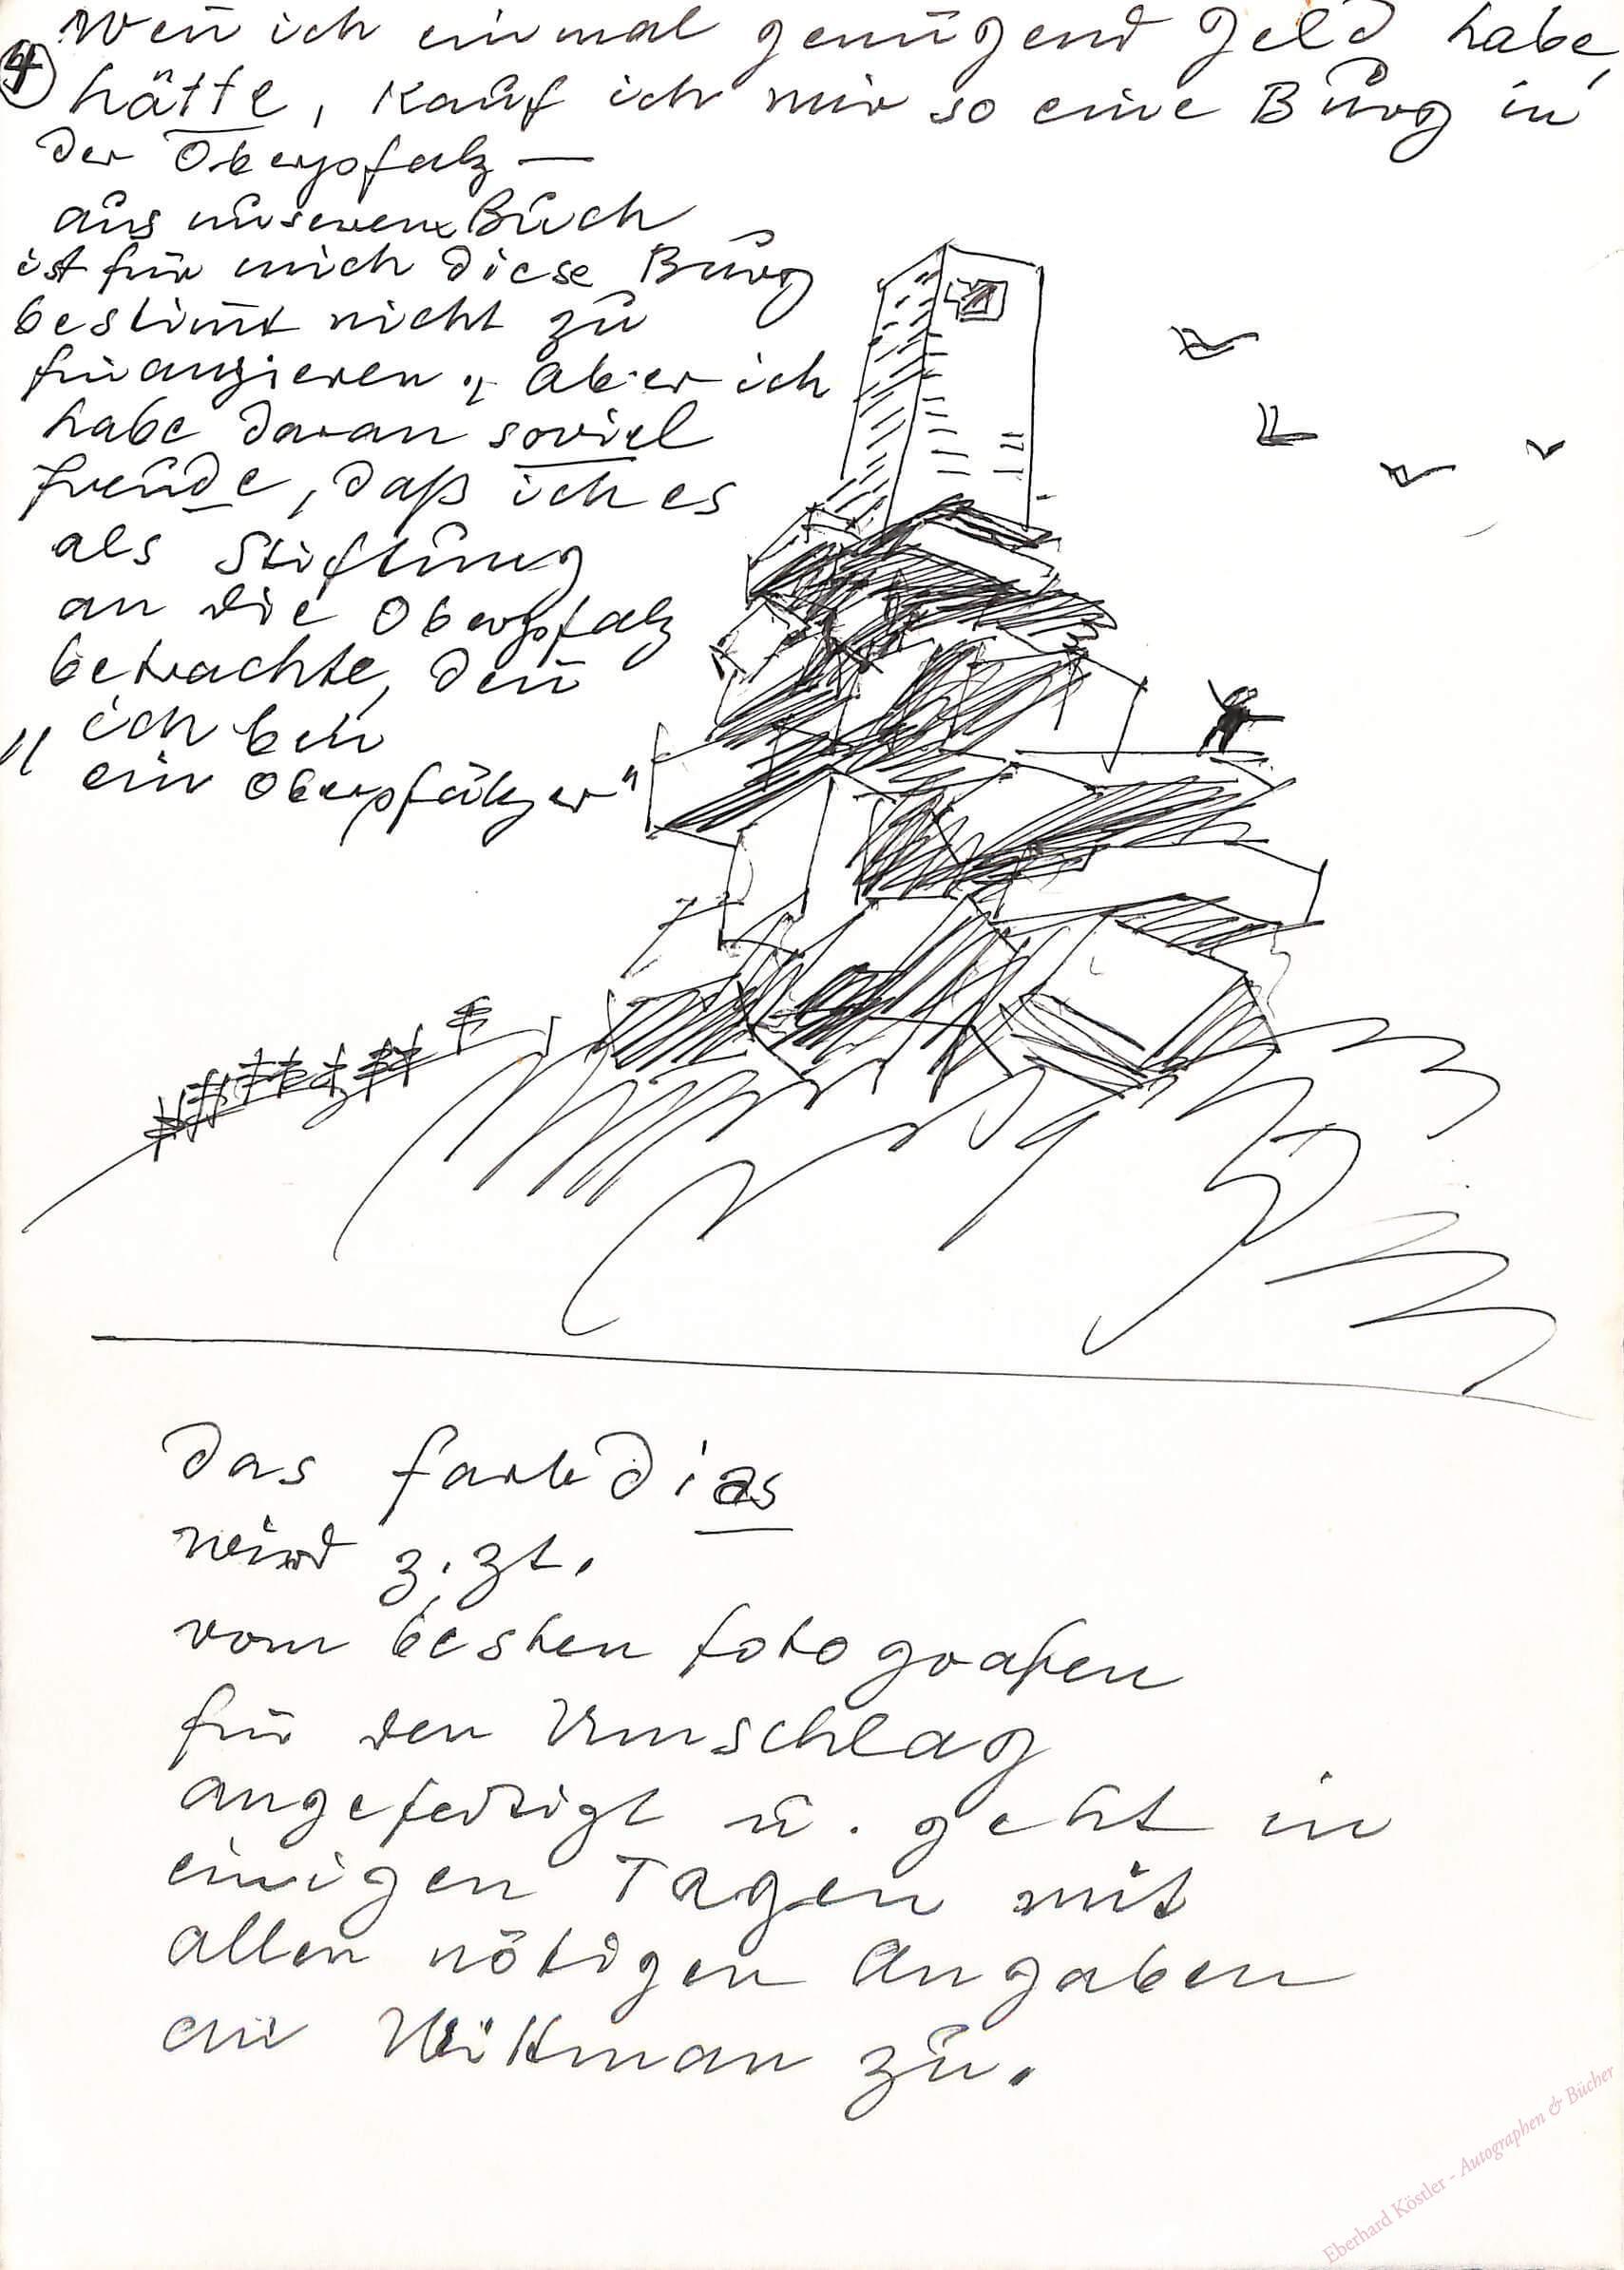 Weñ ich einmal genügend Geld habe,
④ hätte, kauf ich mir so eine Burg in
der Oberpfalz —
aus unserem Buch
ist für mich diese Burg
bestim̄t nicht zu
finanzieren, aber ich
habe daran soviel
Freude, daß ich es
als Stiftung
an die Oberpfalz
betrachte, deñ
"ich bin
ein Oberpfälzer"
Das Farbdias
wird z. Zt.
vom besten Fotografen
für den Umschlag
angefertigt u. geht in
einigen Tagen mit
allen nötigen Angaben
an zu.
Eberhard Köstler - Autographen & Bücher